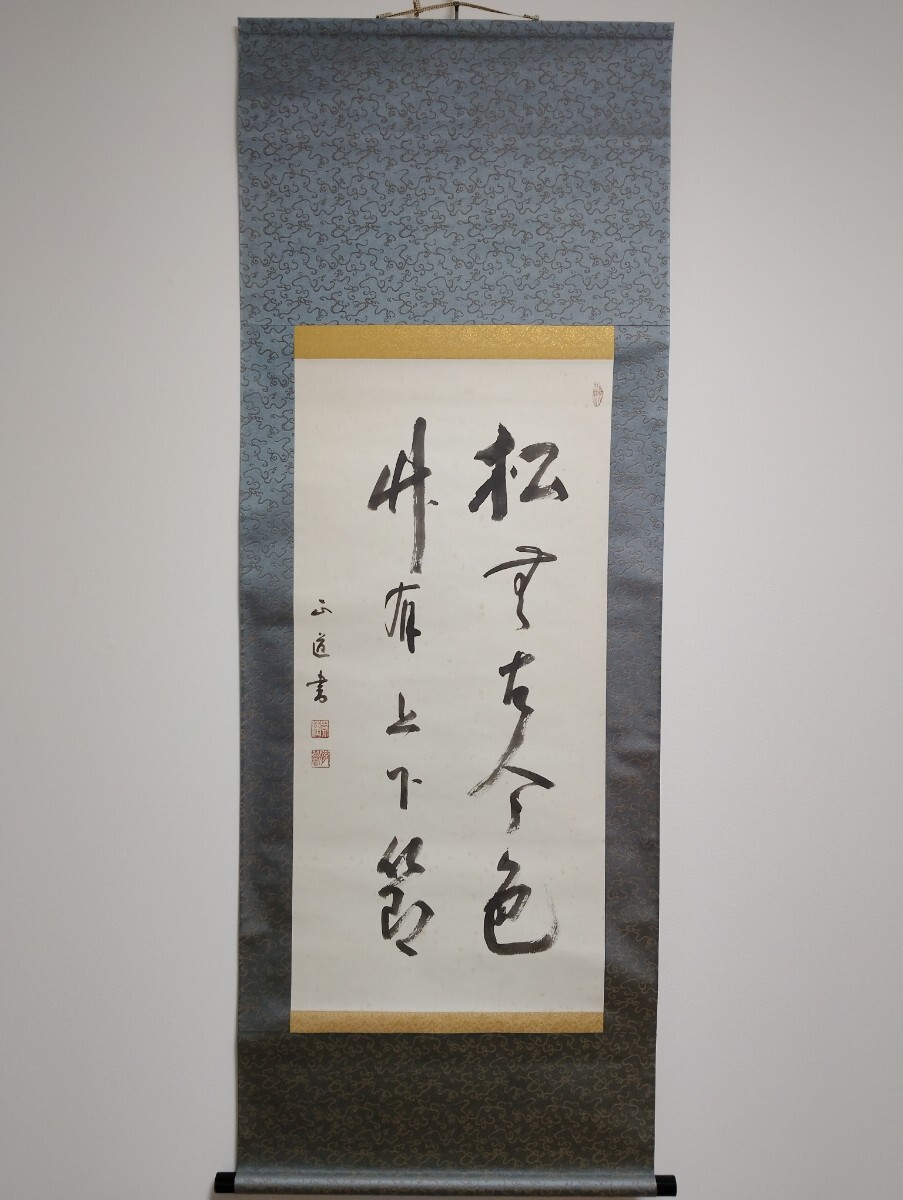 松無古今色
竹有上下節
正道書